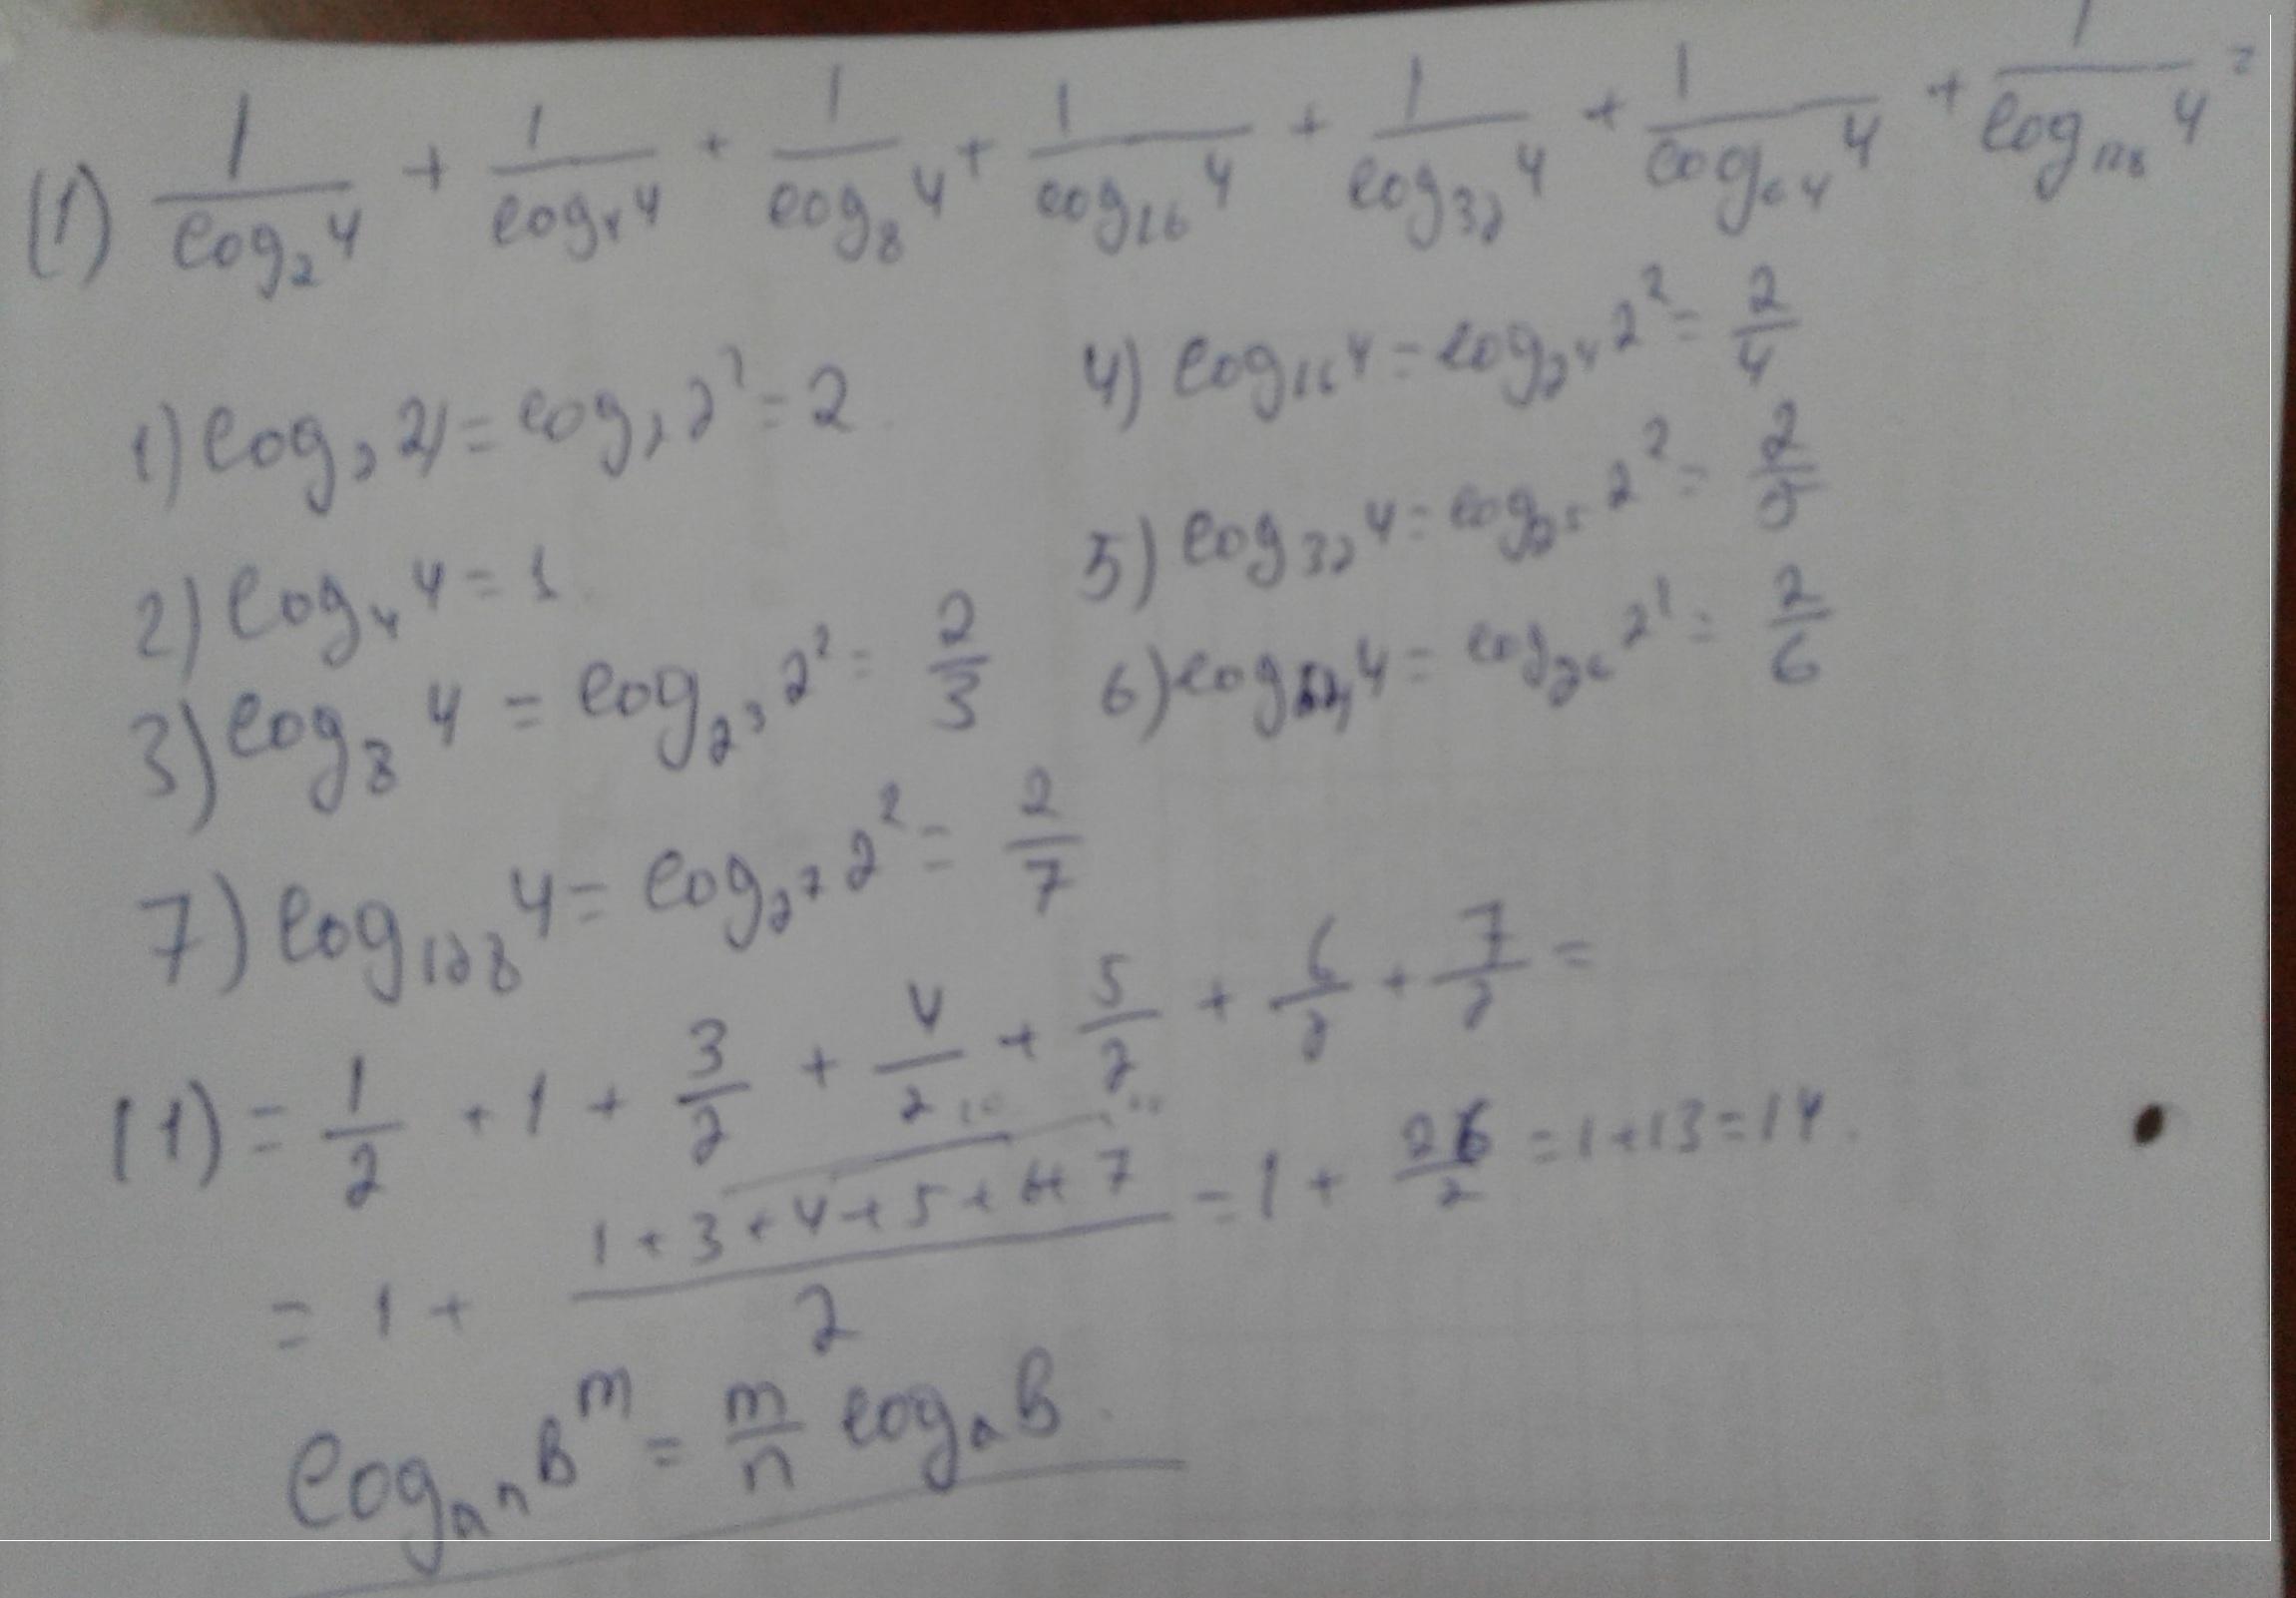 (1) 1/log₂4 + 1/log₄4 + 1/log₈4 + 1/log₁₆4 + 1/log₃₂4 + 1/log₆₄4 + 1/log₁₂₈4 =
1) log₂4 = log₂2² = 2
2) log₄4 = 1
3) log₈4 = log_{2³}2² = 2/3
4) log₁₆4 = log_{2⁴}2² = 2/4
5) log₃₂4 = log_{2⁵}2² = 2/5
6) log₆₄4 = log_{2⁶}2² = 2/6
7) log₁₂₈4 = log_{2⁷}2² = 2/7
(1) = 1/2 + 1 + 3/2 + 4/2 + 5/2 + 6/2 + 7/2 =
= 1 + (1+3+4+5+6+7)/2 = 1 + 26/2 = 1+13=14.
log_{aⁿ}B^m = m/n log_a B.